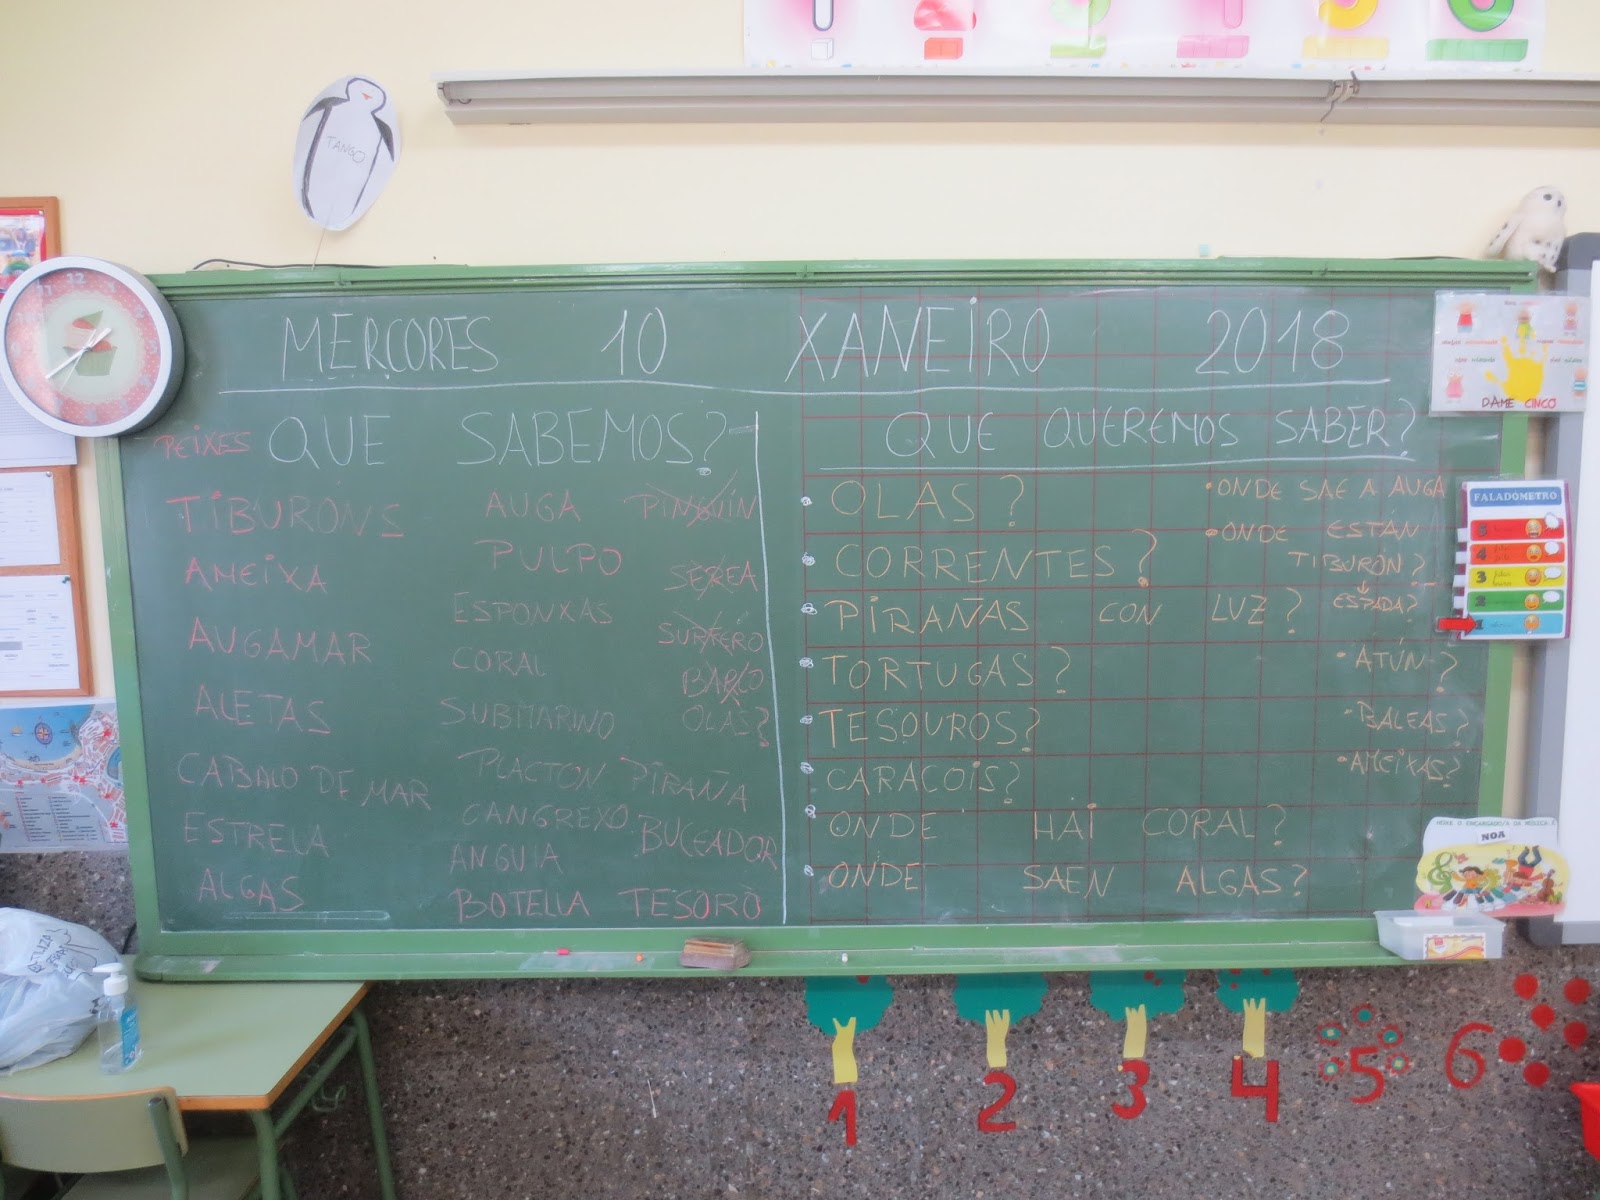 TANGO
MÉRCORES 10 XANEIRO 2018
PEIXES
QUE SABEMOS?
TIBURÓNS
AMEIXA
AUGAMAR
ALETAS
CABALO DE MAR
ESTRELA
ALGAS
AUGA
PULPO
ESPONXAS
CORAL
SUBMARINO
PLACTON
CANGREXO
ANGUIA
BOTELLA
PINGUÍN
SEREA
SURFERO
BARCO
OLAS?
PIRAÑA
BUCEADOR
TESORO
QUE QUEREMOS SABER?
OLAS?
CORRENTES?
PIRAÑAS CON LUZ?
TORTUGAS?
TESOUROS?
CARACOIS?
ONDE HAI CORAL?
ONDE SAEN ALGAS?
ONDE SAE A AUGA
ONDE ESTÁN
TIBURÓN?
ESPADA?
ATÚN?
BALEAS?
AMEIXAS?
DAME CINCO
FALADÓMETRO
5
4
3
2
1
HOXE O ENCARGADO/A DA MÚSICA É
NOA
1 2 3 4 5 6